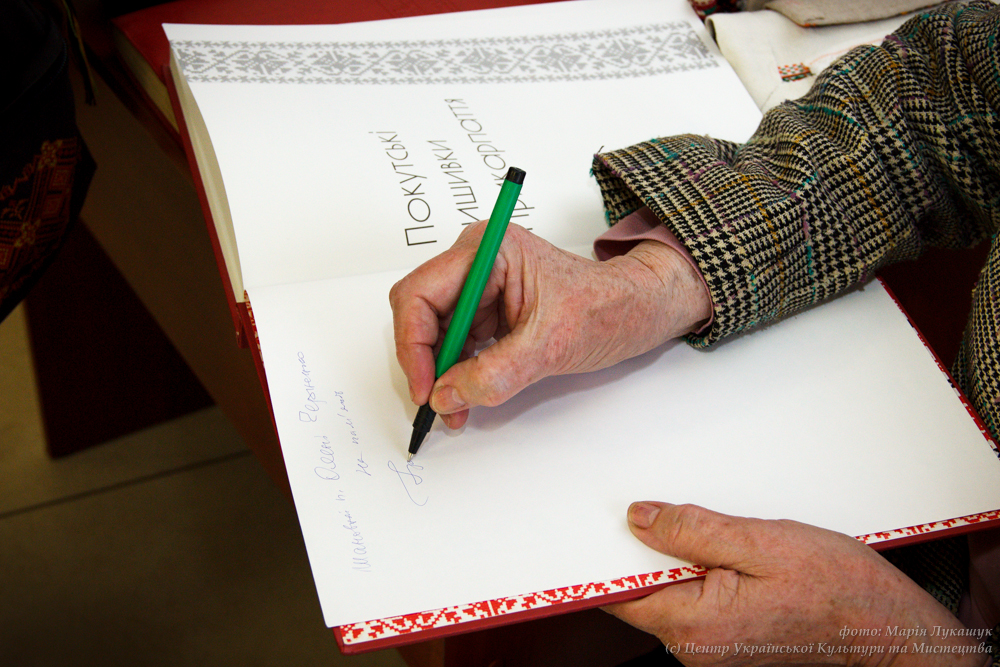 Покутські
вишивки
Прикарпаття
Шановній п. Олені
на пам'ять
фото: Марія Лукашук
(с) Центр Української Культури та Мистецтва